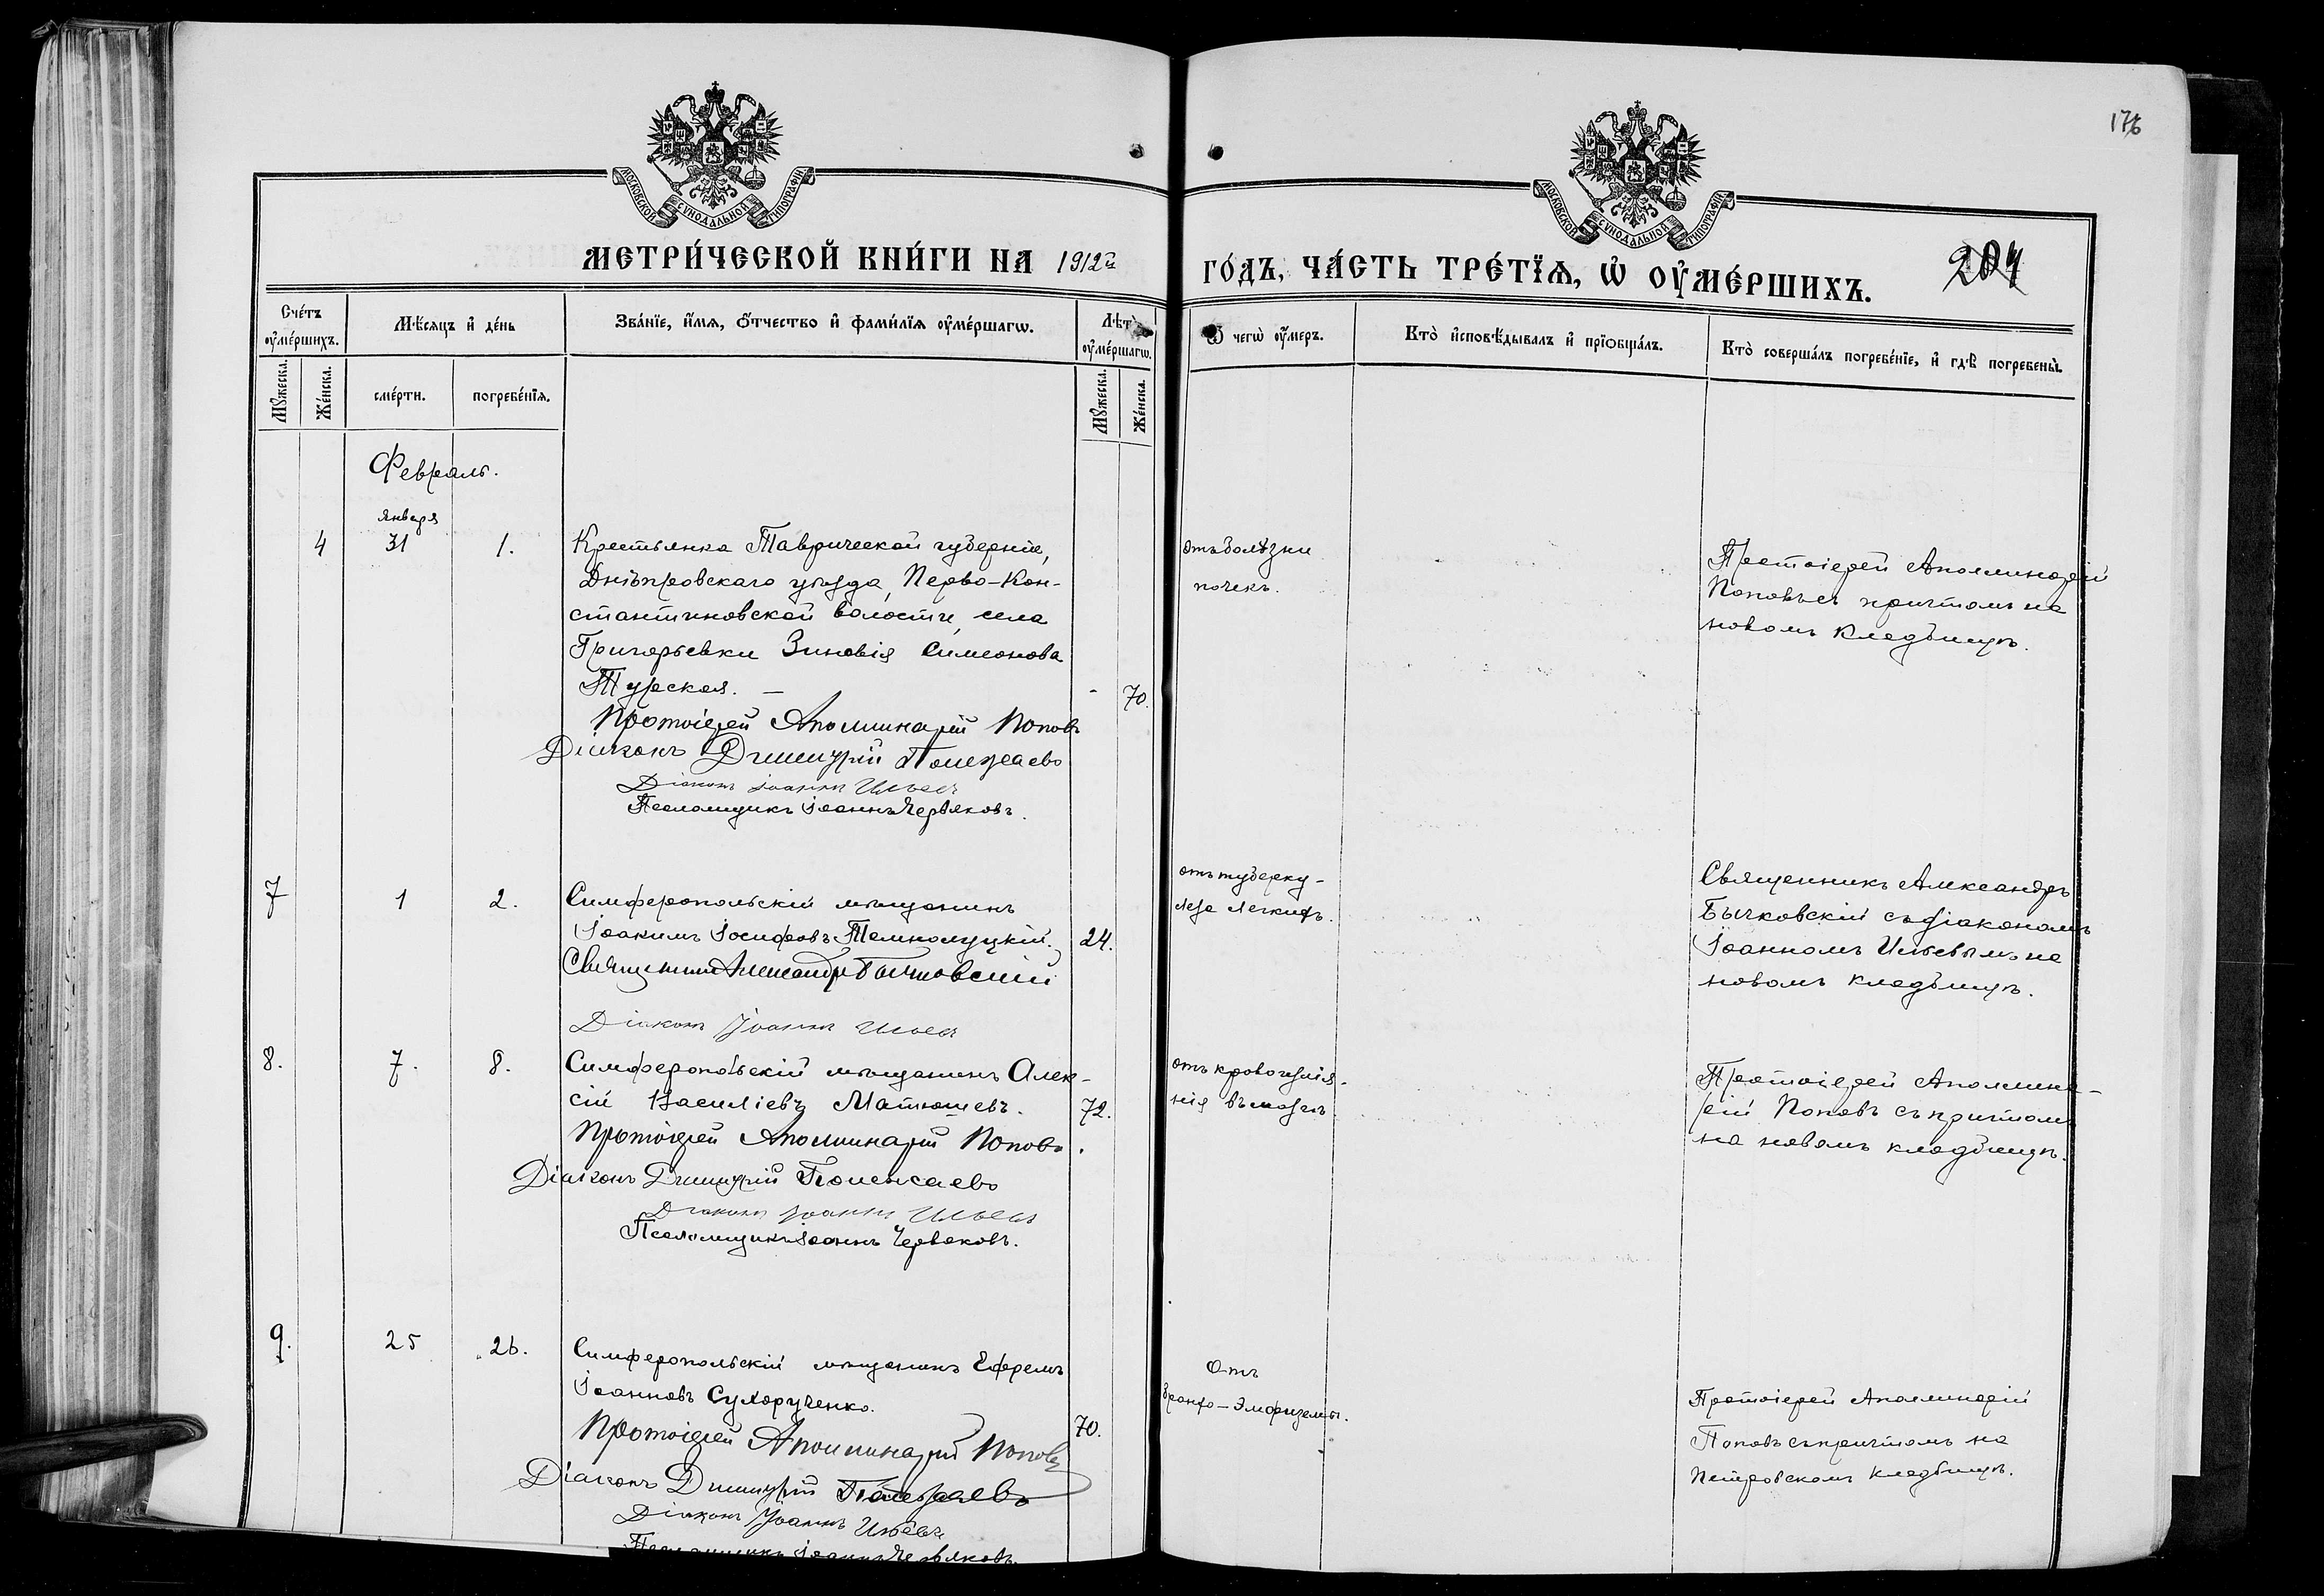 176
МОСКОВСКОЙ СУНОДАЛЬНОЙ ТИПОГРАФІИ
МОСКОВСКОЙ СУНОДАЛЬНОЙ ТИПОГРАФІИ
МЕТРИ́ЧЕСКОЙ КНИ́ГИ НА 1912й
ГО́ДЪ, ЧА́СТЬ ТРЕ́ТЇѦ, Ѡ҆ ОУ҆МЕ́РШИХЪ.
204
Сче́тъ оу҆ме́ршихъ.
Мѣ́сяцъ и҆ де́нь
Зва́нїе, и҆́мѧ, ѻ҆́тчество и҆ фами́лїѧ оу҆ме́ршагѡ.
Лѣ́тъ оу҆ме́ршагѡ.
Ѿ чегѡ̀ оу҆́меръ.
Кто̀ и҆сповѣ́дывалъ и҆ прїѻбща́лъ.
Кто̀ соверша́лъ погребе́нїе, и҆ гдѣ̀ погребены̀.
Мꙋ́жеска.
Же́нска.
сме́рти.
погребе́нїѧ.
Мꙋ́жеска.
Же́нска.
Февраль.
января
4 31 1.
Крестьянка Таврической губерніи,
Днѣпровскаго уѣзда, Перво-Кон-
стантиновской волости, села
Григорьевки Зиновія Симеонова
Турская. — 70.
Протоіерей Аполлинарій Поповъ
Діаконъ Димитрій Полежаевъ
Діаконъ Іоаннъ Ильевъ
Псаломщикъ Іоаннъ Червяковъ.
отъ болѣзни
почекъ.
Протоіерей Аполлинарій
Поповъ съ причтомъ на
новомъ кладбищѣ.
7 1 2.
Симферопольскій мѣщанинъ
Іоакимъ Іосифовъ 24.
Священникъ Александръ Бычковскій
Діаконъ Іоаннъ Ильевъ
отъ туберку-
леза легкихъ.
Священникъ Александръ
Бычковскій съ діакономъ
Іоанномъ Ильевымъ на
новомъ кладбищѣ.
8. 7. 8.
Симферопольскій мѣщанинъ Алек-
сій Василіевъ Матюшевъ. 72.
Протоіерей Аполлинарій Поповъ.
Діаконъ Димитрій Полежаевъ
Діаконъ Іоаннъ Ильевъ
Псаломщикъ Іоаннъ Червяковъ.
отъ кровоизлія-
нія въ мозгъ
Протоіерей Аполлина-
рій Поповъ съ причтомъ
на новомъ кладбищѣ.
9. 25 26.
Симферопольскій мѣщанинъ Ефремъ
Іоанновъ Сухорученко. 70.
Протоіерей Аполлинарій Поповъ
Діаконъ Димитрій Полежаевъ
Діаконъ Іоаннъ Ильевъ
Псаломщикъ Іоаннъ Червяковъ.
Отъ
бронхо-эмфиземы.
Протоіерей Аполлинарій
Поповъ съ причтомъ на
Петровскомъ кладбищѣ.